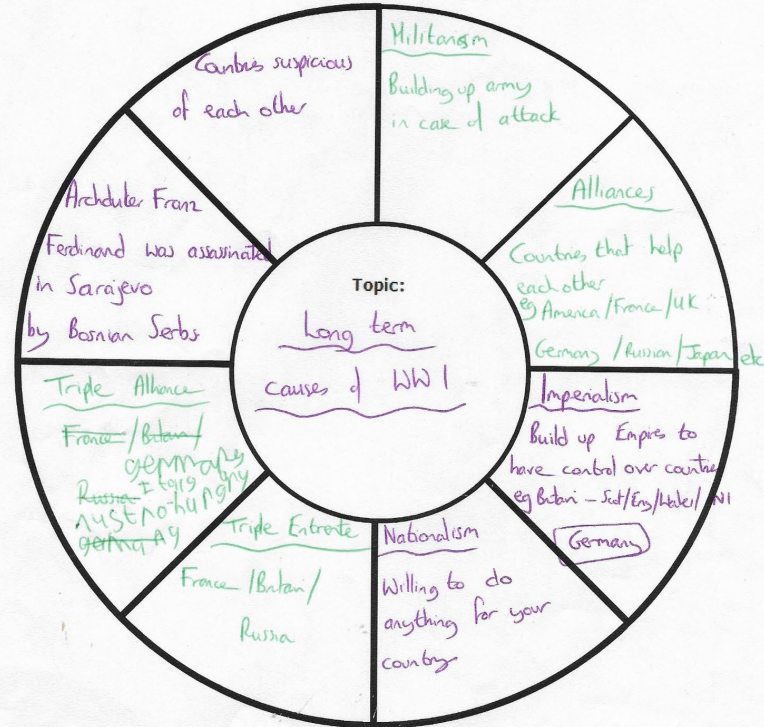 Topic:
Long term
causes of WW1
Militarism
Building up army
in case of attack
Alliances
Countries that help
each other
eg America/France/UK
Germany/Russian/Japan etc
Imperialism
Build up Empires to
have control over countries
eg Britain - Scot/Eng/Wales/NI
Germany
Nationalism
Willing to do
anything for your
country
Triple Entente
France/Britain/
Russia
Triple Alliance
France/Britain/
germany
Russia Italy
Austro-hungry
germany
Archduter Franz
Ferdinand was assassinated
in Sarajevo
by Bosnian Serbs
Countries suspicious
of each other